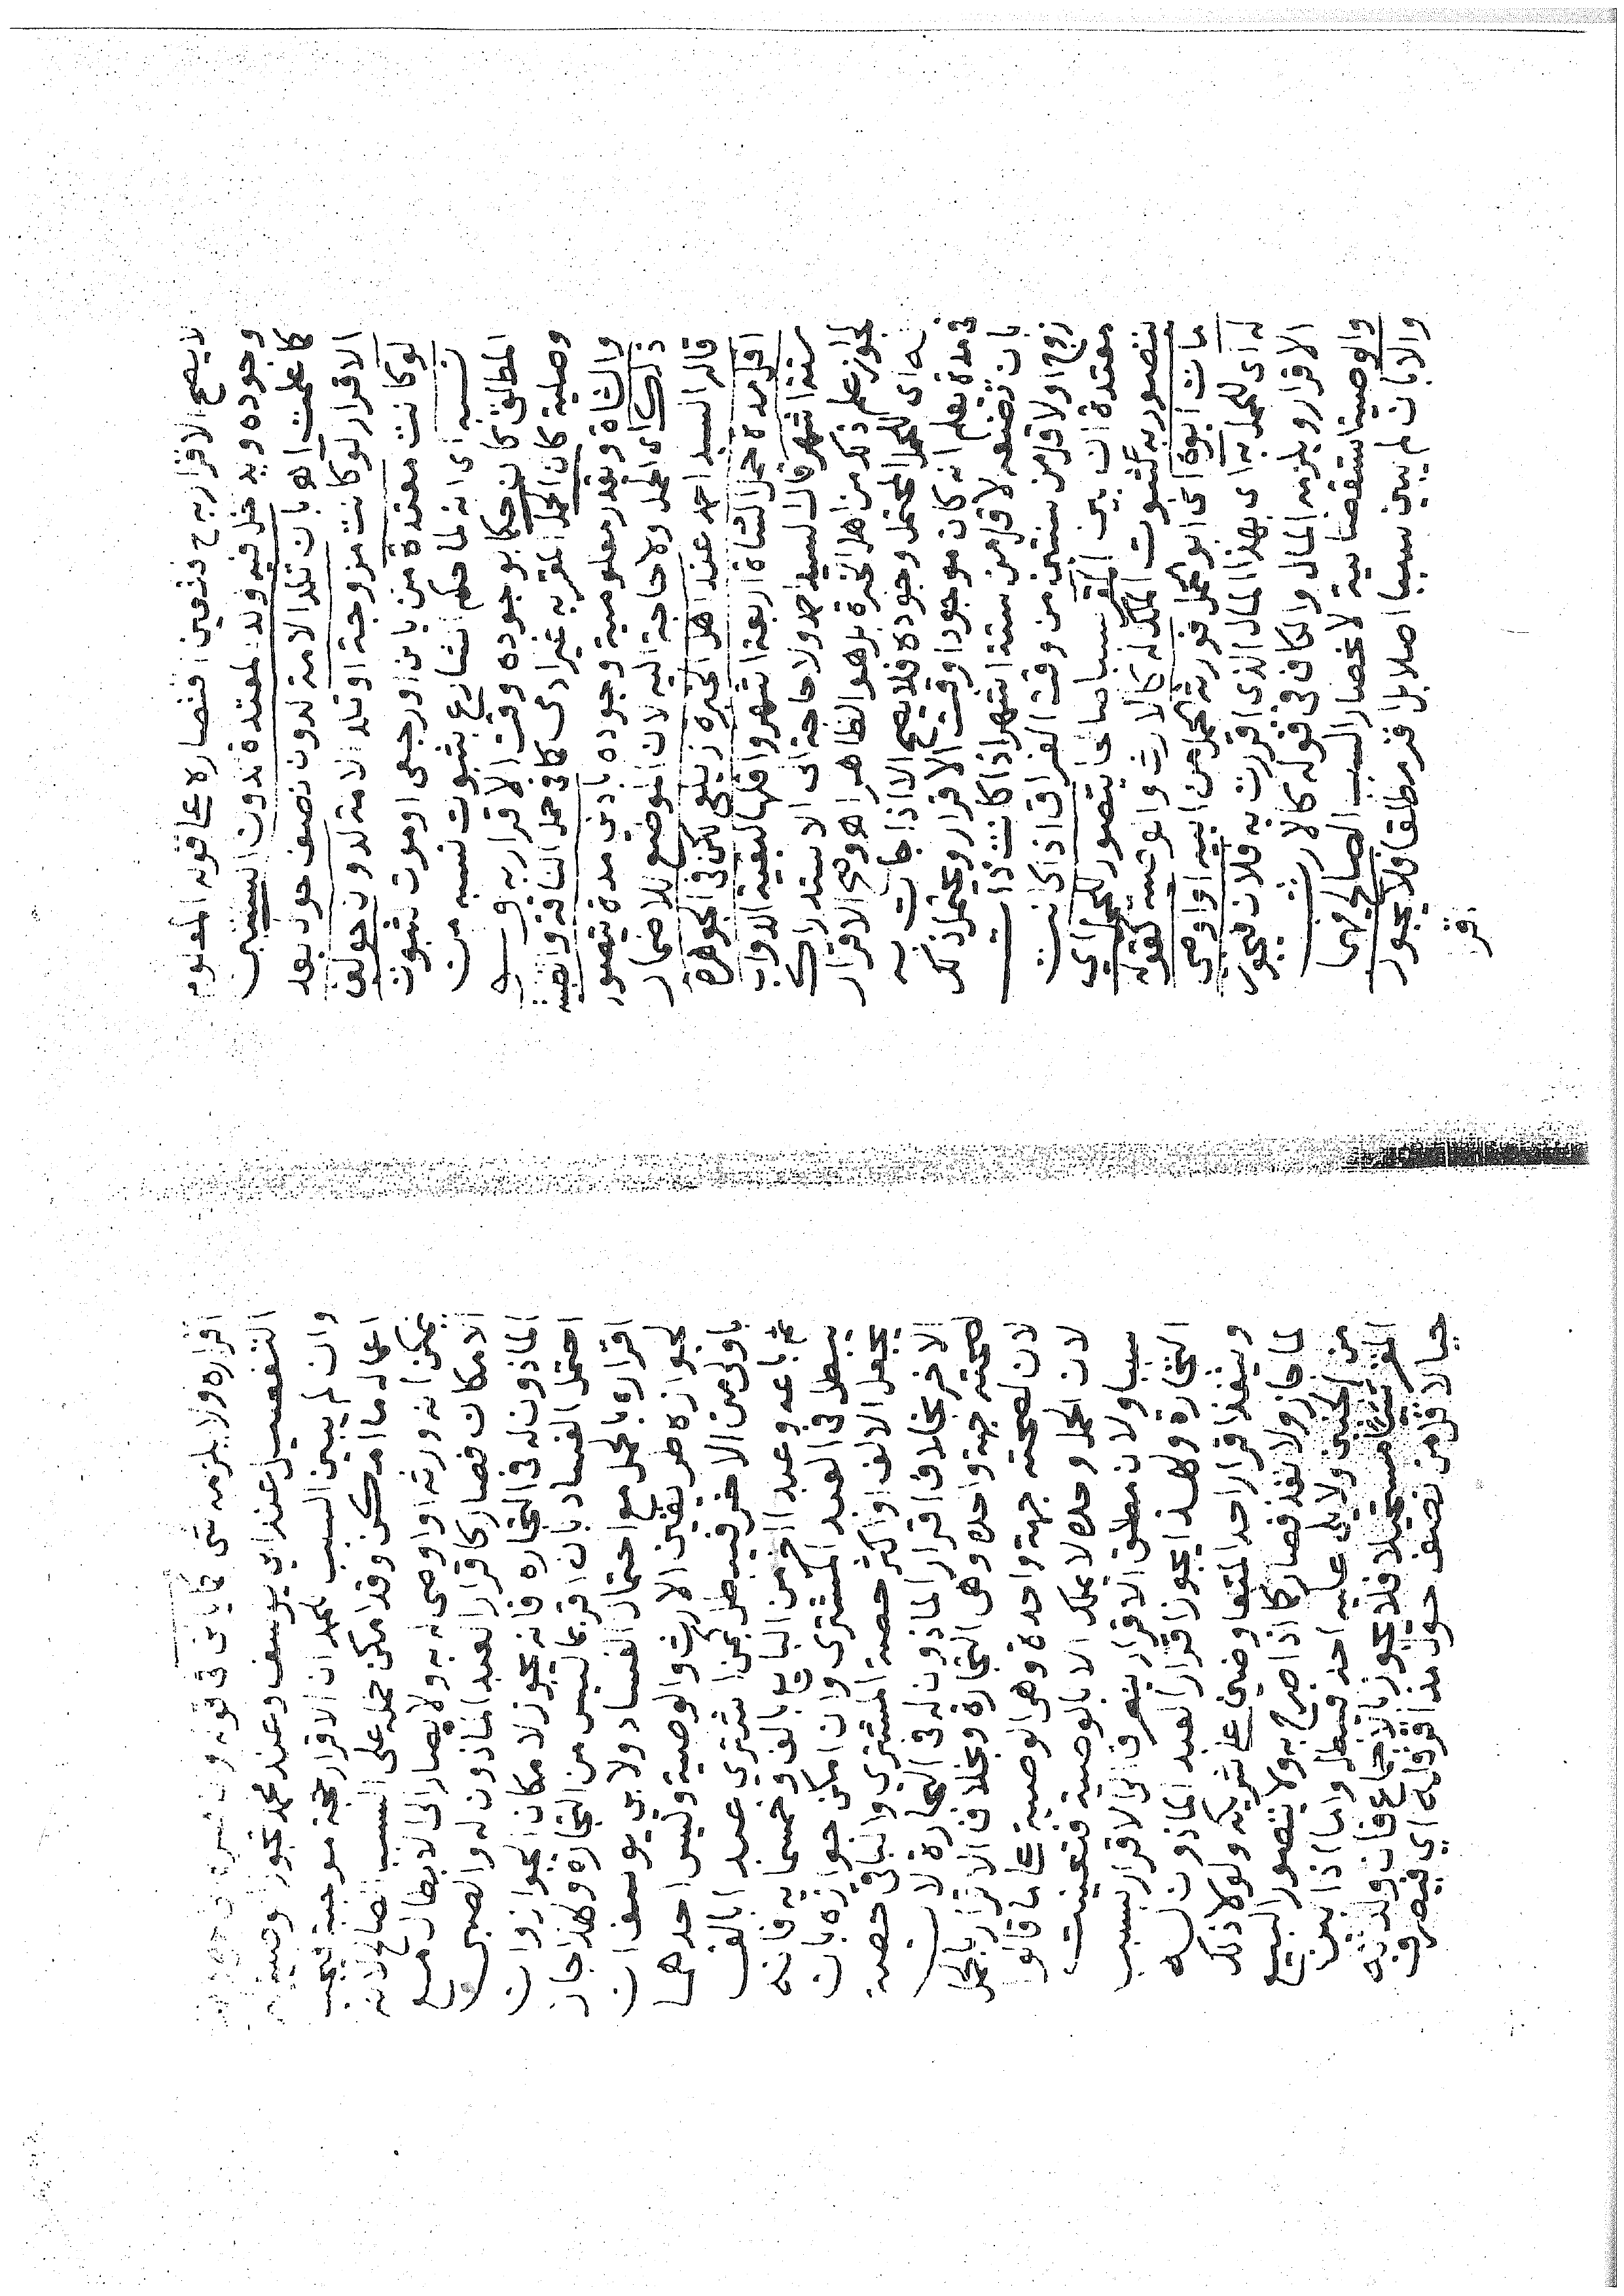 لا يصح الاقرار به ح فتعين اقتصاره على قوله المعلوم
وجوده ويدخل فيه ولد المعتدة لدون السنتين
كما علمت اه بان تلد الامة لدون نصف حول بعد
الاقرار لو كانت مزوجة او تلد الامة لدون حولين
لو كانت معتدة من باين او رجعي او موت لثبوت
نسبه اى انه لما حكم الشارع بثبوت نسبه من
المطلق كان حكما بوجوده وقت الاقرار به و
وصلية كان الحمل المقر به غير ادمى كما فى حمل الناقة
والشاة ويقدر معلومية وجوده بادنى مدة يتصور
ذلك اى الحمل ولا حاجة اليه لان الموضع للاضمار
قاله السيد احمد عند اهل الخبرة زيلعى لكن فى الجوهرة
اقل مدة حمل الشاة اربعة اشهر واقلها لبقية الدواب
ستة اشهر قال السيد احمد ولا حاجة الى الاستدراك
لجواز علم ذلك من اهل الخبرة بل هو الظاهر اه وصح الاقرار
له اى للحمل المحتمل وجوده فلا يصح الا اذا جات به
فى مدة يعلم انه كان موجودا وقت الاقرار ويحتمل ذلك
بان تضعه لاقل من ستة اشهر اذا كانت ذات
زوج او لاقل من سنتين من وقت الفراق اذا كانت
معتدة ان بين المقر سببا صالحا يتصور للحمل اى
يتصور به ثبوت الملك له كالارث والوصية كقوله
مات ابوه اى ابو الحمل فورثه الحمل من ابيه او اوصى
له اى للحمل به اى بهذا المال الذى اقررت به فلان فيجوز
الاقرار ويلزمه المال والكاف فى قوله كالارث
والوصية استقصائية لانحصار السبب الصالح فيهما
والا بان لم يبين سببا اصلا بل اقر مطلقا فلا يجوز
اقر
اقراره ولا يلزمه شى
التفصيل عند ابى يوسف وعند محمد تجوز
وان لم يبين السبب لمحمد ان الاقرار حجة موجبة فيجب
اعماله ما امكن وقد امكن حمله على السبب الصالح لانه
يمكن انه ورثه او اوصى له به ولا يصار الى الابطال مع
الامكان فصار كاقرار العبد الماذون له والصبى
الماذون له فى التجارة فانه يجوز لامكان الجواز وان
احتمل الفساد بان اقر بما ليس من التجارة ولهذا جاز
اقراره بالحمل مع احتمال الفساد ولابى يوسف ان
لجوازه طريقين الارث والوصية وليس احدهما
باولى من الاخر فيبطل كمن اشترى عبدا بالف
ثم باعه وعبدا اخر من البايع بالف وخمسماية فانه
يبطل فى العبد المشترى وان امكن جوازه بان
يجعل الالف او اكثر حصة المشترى والباقى حصة
الاخر بخلاف اقرار الماذون له فى التجارة لان
لصحته جهة واحدة وهى التجارة وبخلاف الاقرار بالحمل
لان لصحته جهة واحدة وهى الوصية على ما قالوا
لان الحمل وحده لا يملك الا بالوصية فتعينت
سببا ولان مطلق الاقرار ينصرف الى الاقرار بسبب
التجارة ولهذا يجوز اقرار العبد الماذون له
وينفذ اقرار احد المتفاوضين على شريكه ولولا ذلك
لما جاز ولا نفذ فصار كما اذا صرح به ولا يتصور البيع
من الجنين ولا يلى عليه احد فبطل واما اذا بين
المقر سببا مستحيلا فلا يجوز بالاجماع فان ولدته
حيا لاقل من نصف حول مذ اقر فله اى فيصرف